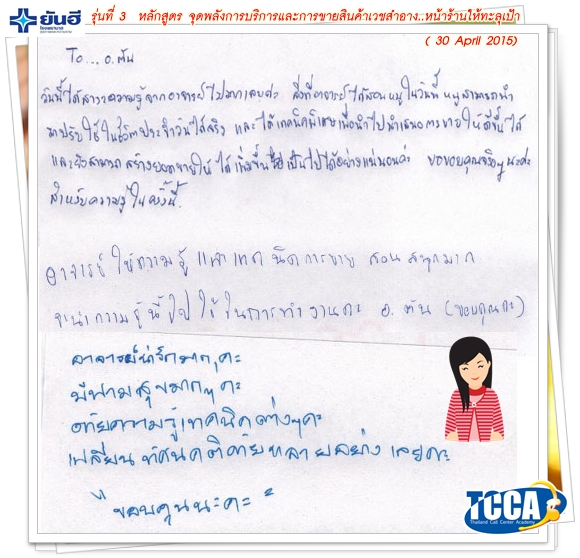 ยันฮี
โรงพยาบาล
รุ่นที่ 3 หลักสูตร จุดพลังการบริการและการขายสินค้าเวชสำอาง..หน้าร้านให้ทะลุเป้า
( 30 April 2015)
To... อ.ตัน
วันนี้ได้สาระความรู้จากอาจารย์ไปมากเลยค่ะ สิ่งที่อาจารย์ได้สอนหนูในวันนี้ หนูสามารถนำ
มาปรับใช้ในชีวิตประจำวันได้จริง และได้เทคนิคพิเศษเพื่อนำไปนำเสนอการขายให้ดีขึ้นได้
และยังสามารถสร้างยอดขายให้ได้เพิ่มขึ้น เป็นไปได้อย่างแน่นอนค่ะ ขอขอบคุณจริงๆนะค่ะ
สำหรับความรู้ในครั้งนี้.
อาจารย์ให้ความรู้ เทคนิคการขาย สอนสนุกมาก
จะนำความรู้นี้ไปใช้ในการทำงานคะ อ.ตัน (ขอบคุณคะ)
อาจารย์น่ารักมากๆคะ
มีความสุขมากๆคะ
ความรู้เทคนิคต่างๆคะ
เปลี่ยนทัศนคติ หลายอย่างเลยคะ
"ขอบคุณนะคะ"
TCCA
Thailand Call Center Academy